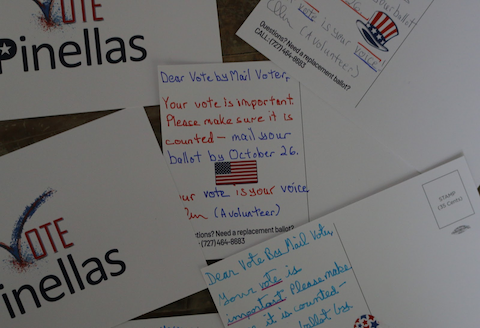 VOTE
Pinellas
ballot
vote is your
voice
(A volunteer)
Questions? Need a replacement ballot?
CALL: (727) 464-8683
Dear Vote by Mail Voter,
Your vote is important.
Please make sure it is
counted - mail your
ballot by October 26.
ur vote is your voice
(A volunteer)
estions? Need a replacement ballot?
: (727) 464-8683
VOTE
Pinellas
STAMP
(35 Cents)
Dear Vote By Mail Voter,
Your vote is
important Please make
it is counted-
ballot by